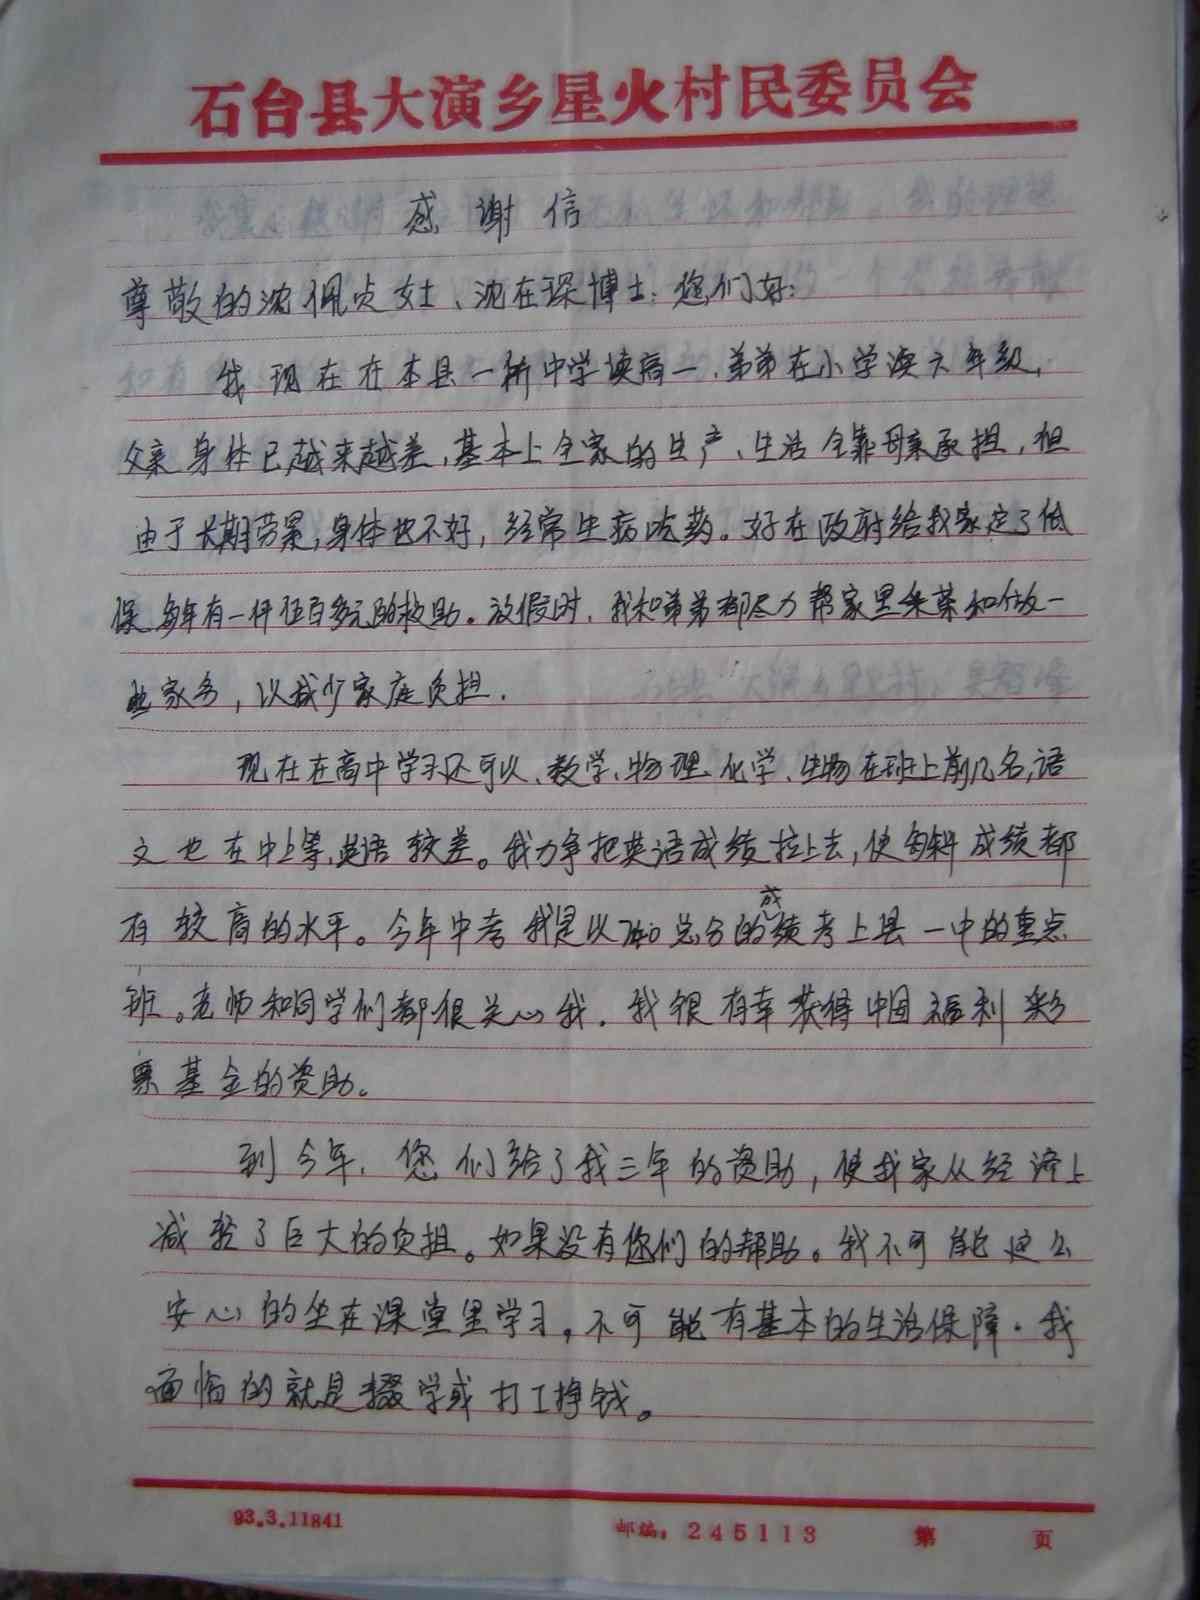 石台县大演乡星火村民委员会
感谢信
尊敬的沈佩贞女士、沈在琛博士：您们好：
我现在在本县一所中学读高一，弟弟在小学读六年级，
父亲身体已越来越差，基本上全家的生产、生活全靠母亲承担，但
由于长期劳累，身体也不好，经常生病吃药。好在政府给我家定了低
保，每年有一仟伍百多元的救助。放假时，我和弟弟都尽力帮家里采茶和做一
些家务，以减少家庭负担.
现在在高中学习还可以、数学、物理、化学、生物在班上前几名，语
文也在中上等，英语较差。我力争把英语成绩拉上去，使每科成绩都
有较高的水平。今年中考我是以740总分的成绩考上县一中的重点
班。老师和同学们都很关心我. 我很有幸获得中国福利彩
票基金的资助。
到今年，您们给了我三年的资助，使我家从经济上
减轻了巨大的负担。如果没有您们的帮助。我不可能这么
安心的坐在课堂里学习，不可能有基本的生活保障. 我
面临的就是辍学或打工挣钱。
93.3.11841 邮编：245113 第 页